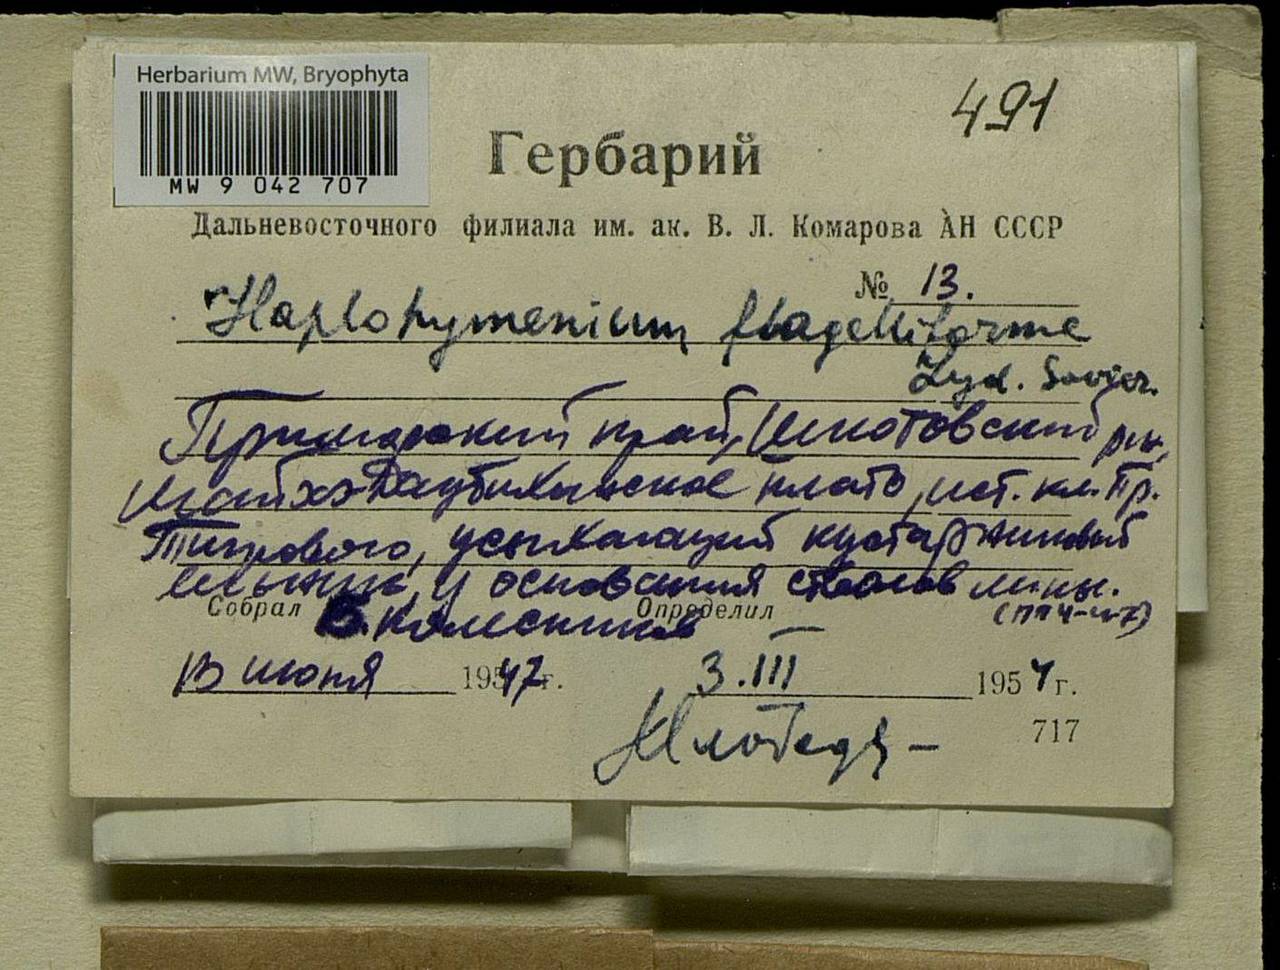 Herbarium MW, Bryophyta
MW 9 042 707
491
Гербарий
Дальневосточного филиала им. ак. В. Л. Комарова АН СССР
№ 13.
Haplohymenium flagelliforme
Lyd. Savicz.
Приморский край, Шкотовский р-н,
Майхэ-Даубихинское плато, ист. кл. Пр.
Тигрового, усыхающий кустарниковый
ильмник, у основания стволов липы.
Собрал В. Колесников Определил
13 июня 1947 г. 3.III 1954 г.
717